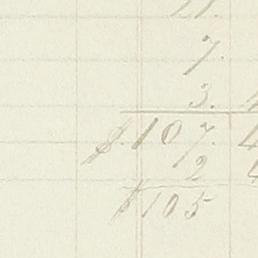 7.
3. 4
$.107. 4
2 4
$105